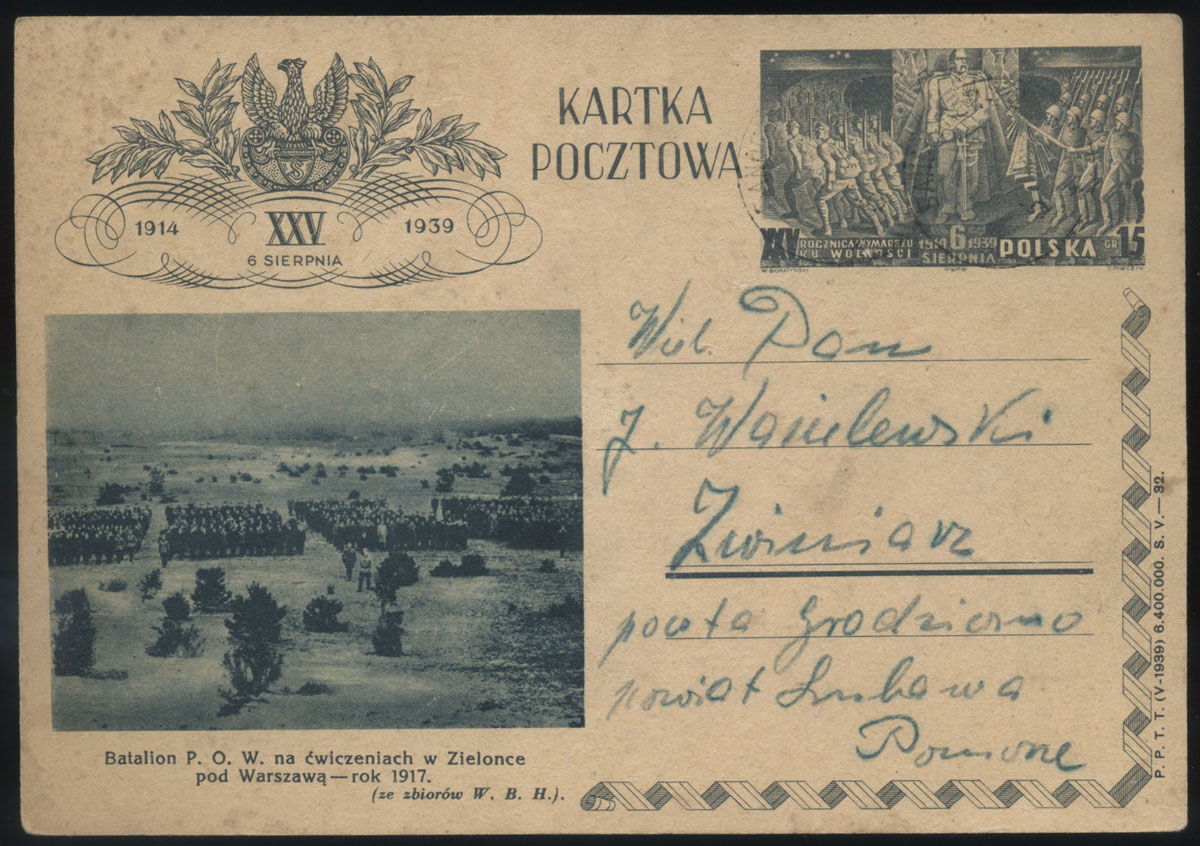 KARTKA
POCZTOWA
S
1914 XXV 1939
6 SIERPNIA
XXV ROCZNICA WYMARSZU
KU WOLNOŚCI
1914 6 1939
SIERPNIA
POLSKA GR 15
Wiel. Pan
J. Wasilewski
Zwiniarz
poczta Grodziczno
powiat Lubawa
Pomorze
Batalion P. O. W. na ćwiczeniach w Zielonce
pod Warszawą — rok 1917.
(ze zbiorów W. B. H.).
P. P. T. T. (V-1939) 6.400.000. S. V. — 32.